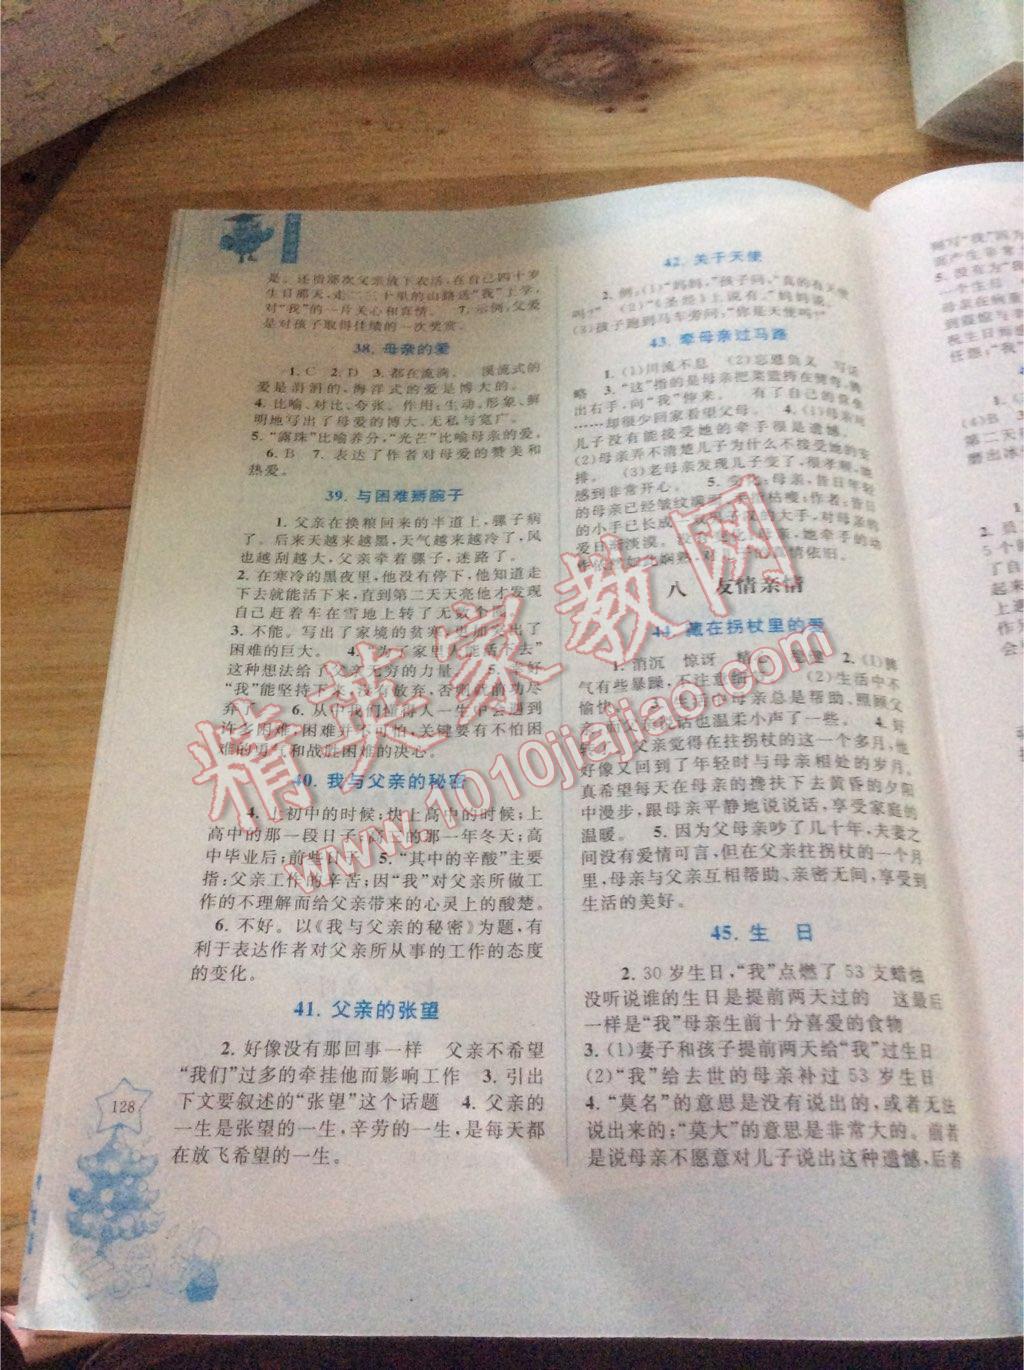 是。还悄那次父亲放下农活,在自己四十岁
生日那天,走二三十里的山路送“我”上学,
对“我”的一片关心和真情。 7. 示例:父爱
是对孩子取得佳绩的一次奖赏。
38. 母亲的爱
1. C 2. D 3. 都在流淌。 溪流式的
爱是涓涓的,海洋式的爱是博大的。
4. 比喻、对比、夸张。作用:生动、形象、鲜
明地写出了母爱的博大、无私与宽广。
5. “露珠”比喻养分,“光芒”比喻母亲的爱。
6. B 7. 表达了作者对母爱的赞美和
热爱。
39. 与困难掰腕子
1. 父亲在换粮回来的半道上,骡子病
了。后来天越来越黑,天气越来越冷了,风
也越刮越大,父亲牵着骡子,迷路了。
2. 在寒冷的黑夜里,他没有停下,他知道走
下去就能活下来,直到第二天天亮他才发现
自己赶着车在雪地上转了无数个圈。
3. 不能。写出了家境的贫寒,更加突出了
困难的巨大。 4. “为了家里人能活下去”
这种想法给了父亲无穷的力量。 5. 幸好
“我”能坚持下来,没有放弃,否则就前功尽
弃了。 6. 从中我们懂得人一生中会遇到
许多困难,困难并不可怕,关键要有不怕困
难的勇气和战胜困难的决心。
40. 我与父亲的秘密
4. 上初中的时候;快上高中的时候;上
高中的那一段日子;高三的那一年冬天;高
中毕业后;前些日子 5. “其中的辛酸”主要
指:父亲工作的辛苦;因“我”对父亲所做工
作的不理解而给父亲带来的心灵上的酸楚。
6. 不好。以《我与父亲的秘密》为题,有
利于表达作者对父亲所从事的工作的态度
的变化。
41. 父亲的张望
2. 好像没有那回事一样 父亲不希望
“我们”过多的牵挂他而影响工作 3. 引出
下文要叙述的“张望”这个话题 4. 父亲的
一生是张望的一生,辛劳的一生,是每天都
在放飞希望的一生。
128
42. 关于天使
2. 例:(1)“妈妈,”孩子问,“真的有天使
吗?” (2)“《圣经》上说有。”妈妈说。
(3)孩子跑到马车旁问:“你是天使吗?”
43. 牵母亲过马路
1. (1)川流不息 (2)忘恩负义 写话
略 3. “这”指的是母亲把菜篮挎在臂弯,腾
出右手,向“我”伸来。 有了自己的家
……却很少回家看望父母。 4. (1)母亲与
儿子没有能接受她的牵手很是遗憾。
(2)母亲弄不清楚儿子为什么不接受她的安
排。 (3)老母亲发现儿子变了,很孝顺,她
感到非常开心。 5. 变化:母亲,昔日年轻
的母亲已经皱纹满面,手满枯嗄;作者:昔日
的小手已长成了双男子汉的大手,对母亲的
爱日渐淡漠。没有变化:母亲,她牵手的动
作依旧如此娴熟,对儿子的真情依旧。
八 友情亲情
44. 藏在拐杖里的爱
1. 消沉 惊讶 精心 2. (1)脾
气有些暴躁,不注意细节。 (2)生活中不
愉快 3. 生活中母亲总是帮助、照顾父
亲,而父亲说话也温柔小声了一些。 4. 好
像父亲觉得在拄拐杖的这一个多月,他
好像又回到了年轻时与母亲相处的岁月。
真希望每天在母亲的搀扶下去黄昏的夕阳
中漫步,跟母亲平静地说说话,享受家庭的
温暖。 5. 因为父母亲吵了几十年,夫妻之
间没有爱情可言,但在父亲拄拐杖的一个月
里,母亲与父亲互相帮助、亲密无间,享受到
生活的美好。
45. 生 日
2. 30岁生日,“我”点燃了53支蜡烛
没听说谁的生日是提前两天过的 这最后
一样是“我”母亲生前十分喜爱的食物
3. (1)妻子和孩子提前两天给“我”过生日
(2)“我”给去世的母亲补过53岁生日
4. “莫名”的意思是没有说出的,或者无法
说出来的;“莫大”的意思是非常大的。前者
是说母亲不愿意对儿子说出这种遗憾,后者
精英家教网
www.1010jiajiao.com